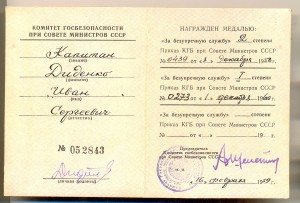 КОМИТЕТ ГОСБЕЗОПАСНОСТИ
ПРИ СОВЕТЕ МИНИСТРОВ СССР
Капитан
(звание)
Диденко
(фамилия)
Иван
(имя)
Сергеевич
(отчество)
№ 052843
(личная подпись)
НАГРАЖДЕН МЕДАЛЬЮ:
«За безупречную службу» степени
Приказ КГБ при Совете Министров СССР
№ 0439 от « » декабря
«За безупречную службу» I степени
Приказ КГБ при Совете Министров СССР
№ 0273 от « » декабря
«За безупречную службу» степени
Приказ КГБ при Совете Министров СССР
№ от « » г.
Председатель
Комитета госбезопасности
при Совете Министров СССР
16 февраля